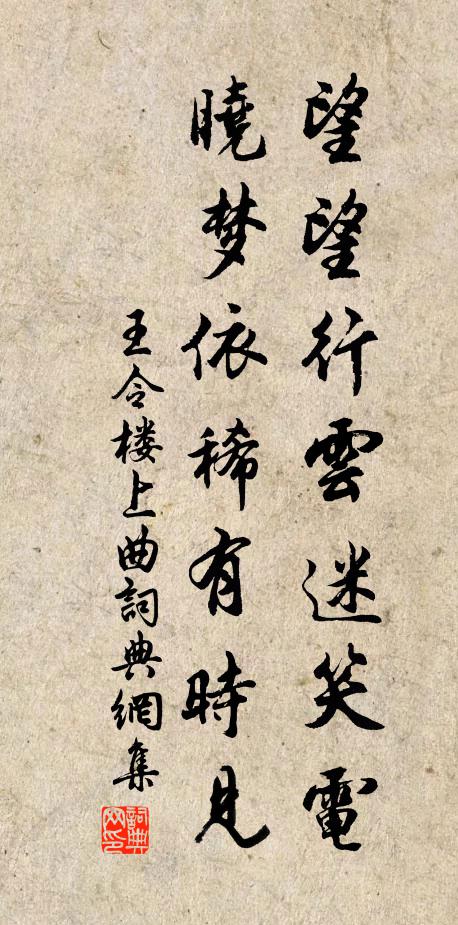 望望行雲迷笑電
曉梦依稀有時見
王令楼上曲詞典網集
詞典网印